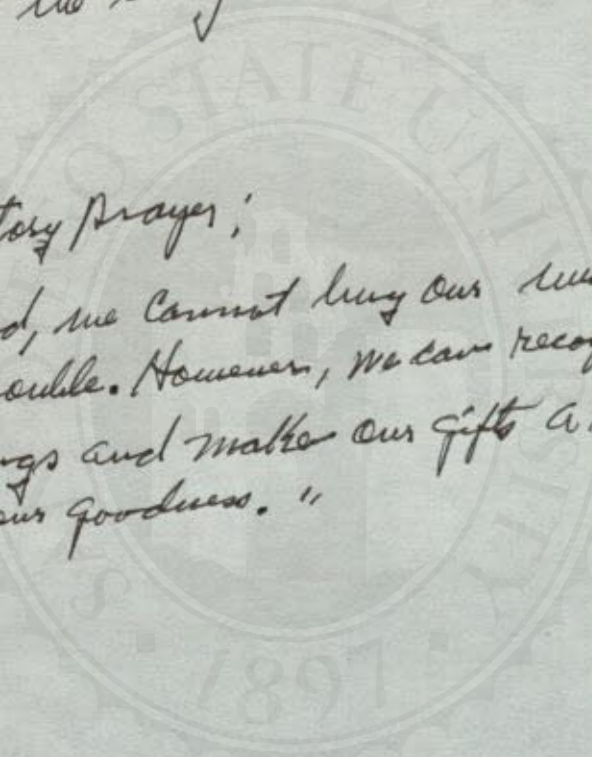 the
tory Prayer;
d, we cannot buy our
ouble. However, we can recog
ngs and make our gifts a
our goodness. "
O STATE UNIVERSITY
1897